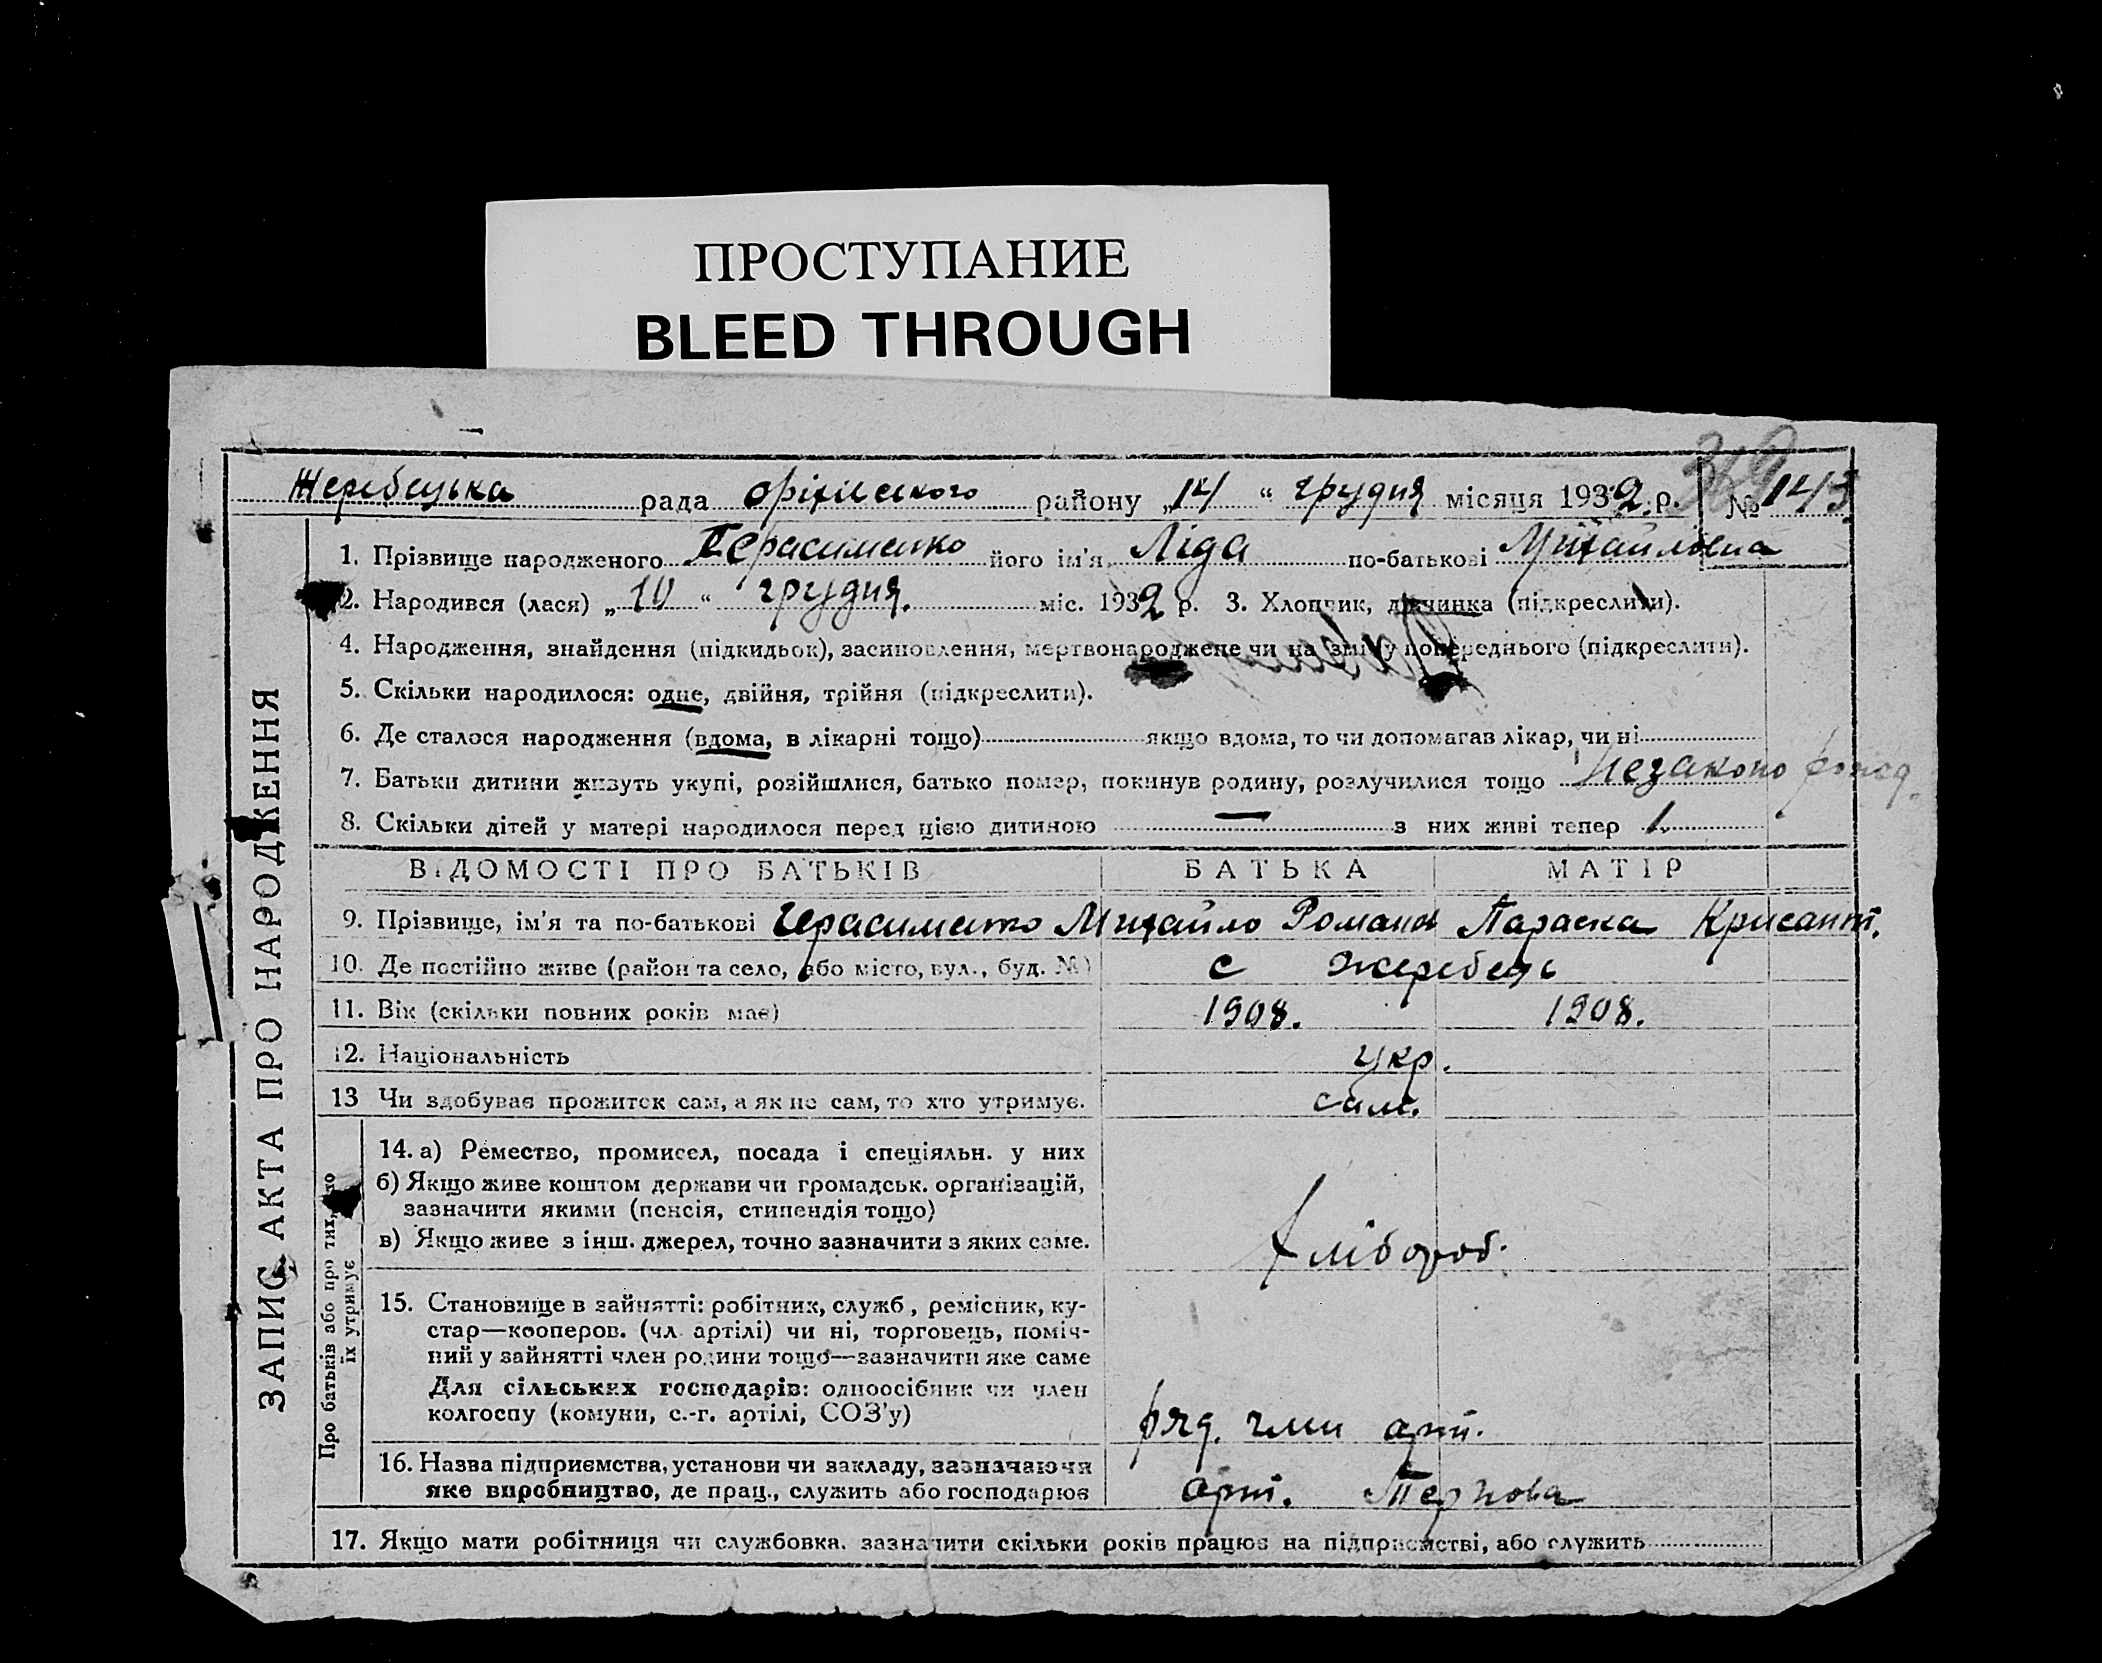 ПРОСТУПАНИЕ
BLEED THROUGH
Жеребецька рада оріхівського району „14“ грудня місяця 1932 р. № 143
1. Прізвище народженого Герасименко його ім'я Ліда по-батькові Михайловна
2. Народився (лася) „10“ грудня. міс. 1932 р. 3. Хлопчик, дівчинка (підкреслити).
4. Народження, знайдення (підкидьок), засиновлення, мертвонароджене чи на зміну попереднього (підкреслити).
5. Скільки народилося: одне, двійня, трійня (підкреслити).
6. Де сталося народження (вдома, в лікарні тощо) якщо вдома, то чи допомагав лікар, чи ні
7. Батьки дитини живуть укупі, розійшлися, батько помер, покинув родину, розлучилися тощо незаконо
8. Скільки дітей у матері народилося перед цією дитиною — з них живі тепер 1.
ВІДОМОСТІ ПРО БАТЬКІВ БАТЬКА МАТІР
9. Прізвище, ім'я та по-батькові Герасименко Михайло Роман Параска Крисант.
10. Де постійно живе (район та село, або місто, вул., буд. №) с Жеребець
11. Вік (скільки повних років має) 1908. 1908.
12. Національність укр.
13 Чи здобуває прожиток сам, а як не сам, то хто утримує. сам.
14. а) Ремество, промисел, посада і спеціяльн. у них
б) Якщо живе коштом держави чи громадськ. організацій,
зазначити якими (пенсія, стипендія тощо)
в) Якщо живе з інш. джерел, точно зазначити з яких саме. Хлібороб.
15. Становище в зайнятті: робітник, служб., ремісник, ку-
стар—кооперов. (чл. артілі) чи ні, торговець, поміч-
ний у зайнятті член родини тощо—зазначити яке саме
Для сільських господарів: одноосібник чи член
колгоспу (комуни, с.-г. артілі, СОЗ'у) ряд. член арт.
16. Назва підприємства, установи чи закладу, зазначаючи
яке виробництво, де прац., служить або господарює арт. Тернова
17. Якщо мати робітниця чи службовка, зазначити скільки років працює на підприємстві, або служить
ЗАПИС АКТА ПРО НАРОДЖЕННЯ
Про батьків або про тих, хто
їх утримує